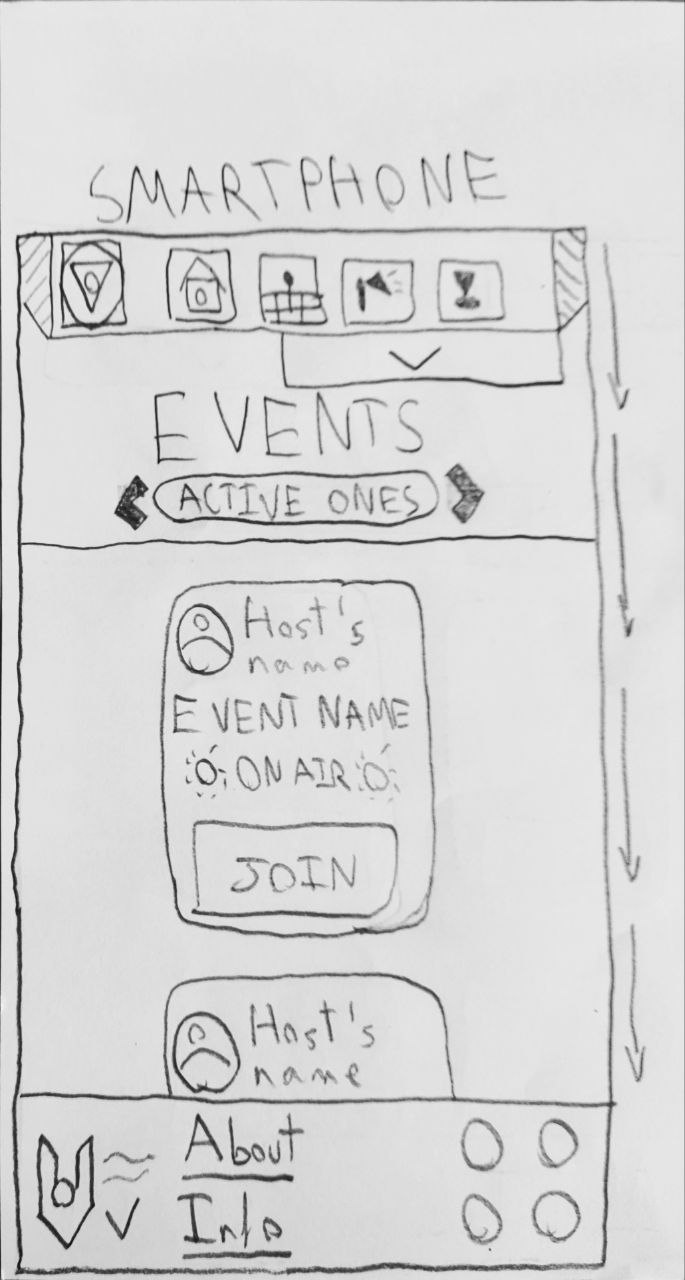 SMARTPHONE
EVENTS
ACTIVE ONES
Host's
name
EVENT NAME
ON AIR
JOIN
Host's
name
About
Info